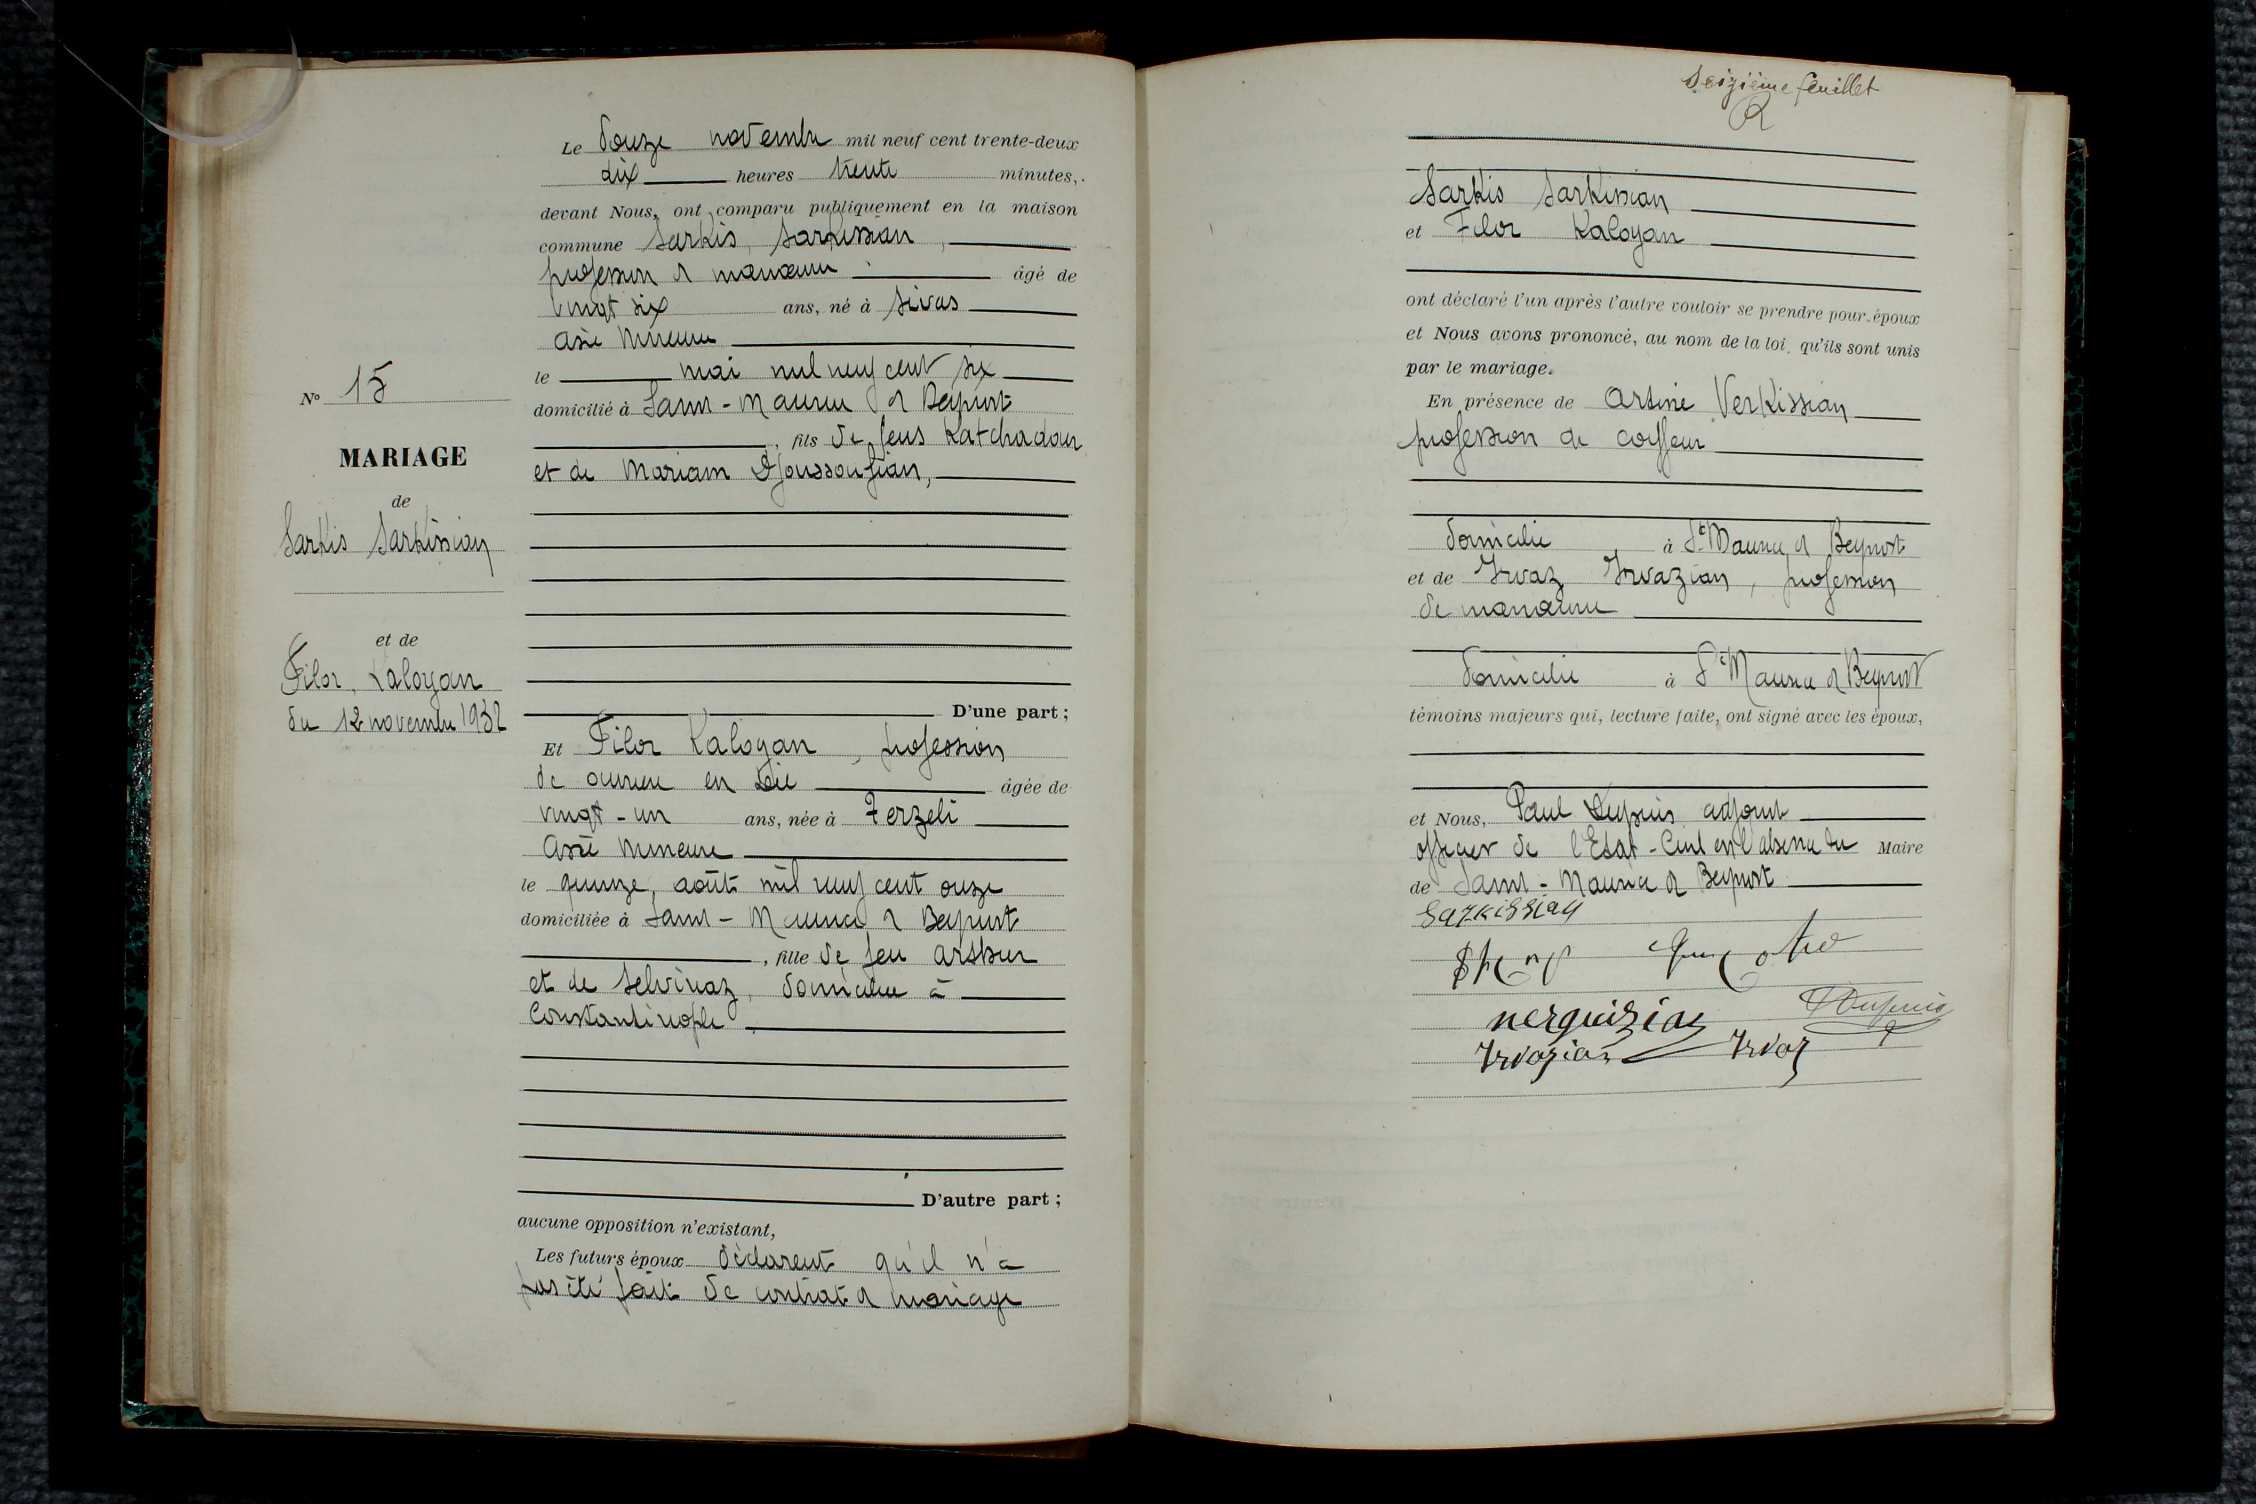 Le douze novembre mil neuf cent trente-deux
dix heures trente minutes,
devant Nous, ont comparu publiquement en la maison
commune Sarkis Sarkissian,
profession de manœuvre âgé de
vingt six ans, né à Sivas
Asie Mineure
le mai mil neuf cent six
domicilié à Saint-Maurice de Beynost
, fils de feus Katchadour
et de Mariam Djoussoufian,
D'une part ;
Et Filor Kaloyan, profession
de ouvrière en soie âgée de
vingt-un ans, née à Zerzeli
Asie Mineure
le quinze août mil neuf cent onze
domiciliée à Saint-Maurice de Beynost
, fille de feu Arthur
et de Selvinaz, domiciliée à
Constantinople
D'autre part ;
aucune opposition n'existant,
Les futurs époux déclarent qu'il n'a
pas été fait de contrat de mariage
N° 15
MARIAGE
de
Sarkis Sarkissian
et de
Filor Kaloyan
du 12 novembre 1932
Seizième feuillet
Sarkis Sarkissian
et Filor Kaloyan
ont déclaré l'un après l'autre vouloir se prendre pour époux
et Nous avons prononcé, au nom de la loi, qu'ils sont unis
par le mariage.
En présence de Arsène Verkissian
profession de coiffeur
domicilié à St Maurice de Beynost
et de Yrvaz Yrvazian, profession
de manœuvre
domicilié à St Maurice de Beynost
témoins majeurs qui, lecture faite, ont signé avec les époux,
et Nous, Paul Dupuis adjoint
officier de l'Etat-Civil en l'absence du Maire
de Saint-Maurice de Beynost
Sarkissian
nerguizian
Dupuis
Yrvazian Yrvaz